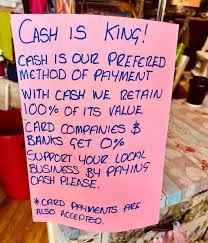 CASH IS KING!
CASH IS OUR PREFERED
METHOD OF PAYMENT
WITH CASH WE RETAIN
100% OF ITS VALUE
CARD COMPANIES &
BANKS GET 0%
SUPPORT YOUR LOCAL
BUSINESS BY PAYING
CASH PLEASE.
* CARD PAYMENTS ARE
ALSO ACCEPTED.